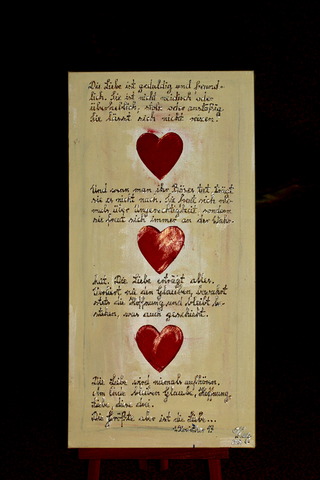 Die Liebe ist geduldig und freund-
lich. Sie ist nicht neidisch oder
überheblich, stolz oder anstößig.
Sie lässt sich nicht reizen.
Und wenn man ihr Böses tut, trägt
sie es nicht nach. Sie freut sich nie-
mals über Ungerechtigkeit, sondern
sie freut sich immer an der Wahr-
heit. Die Liebe erträgt alles.
Verliert nie den Glauben, bewahrt
stets die Hoffnung und bleibt be-
stehen, was auch geschieht.
Die Liebe wird niemals aufhören,
bleiben Glaube, Hoffnung,
Liebe, diese drei.
Die Größte aber ist die Liebe...
13